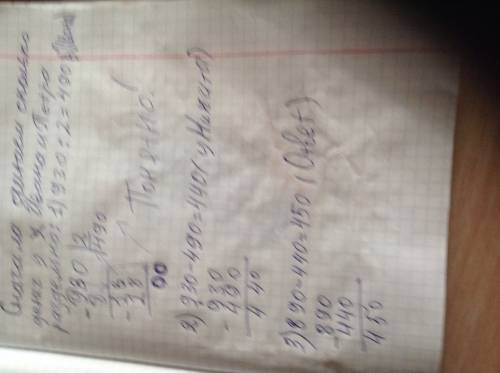 Сначала узнаем сколько
денег у Ивана и Петра
раздельно: 1) 930 : 2 = 490
- 930 | 2
8 | 490
- 13
18
00
Понятно!
2) 930 - 490 = 440 ( у Никиты)
- 930
490
440
3) 890 - 440 = 450 (Ответ)
- 890
440
450